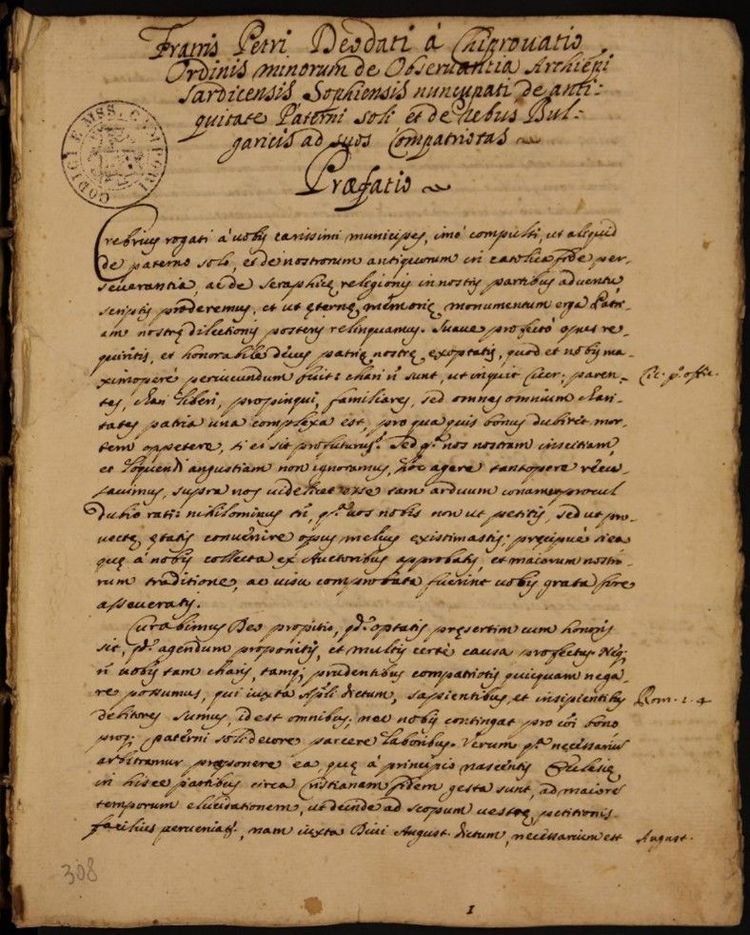 Fratris Petri Deodati à Chiprouatio
Ordinis minorum de Obseruantia Archiepi
Sardicensis Sophiensis nuncupati de anti:
quitate Paterni soli et de rebus Bul=
garicis ad suos Compatriotas
CODICI E MSS. CAMPORI
Præfatio
Crebrius rogati à uobis carissimi municipes, imó compulsi, ut aliquid
de paterno solo, et de nostrorum antiquorum in catolica fide per-
seuerantia, ac de Seraphicę religionis in nostris partibus aduentu
scriptis proderemus, et ut ęternę memorię monumentum erga Patr-
iam nostrę dilectionis posteris relinquamus. Suaue profectò opus re-
quiritis, et honorabile decus patrię nostrę exoptatis, quod et nobis ma-
ximoperè periucundum fuit: chari n̄ sunt, ut inquit Cicer. paren-
Cic. p.º offic.
tes, chari liberi, propinqui, familiares, sed omnes omnium chari-
tates patria una complexa est, pro qua quis bonus dubitet mor-
tem oppetere, si ei sit profuturus? Sed q.ª nos nostram inscitiam,
et loquendi angustiam non ignoramus, hoc agere tantopere
supra nos uidelicet esse tam arduum conamen procul
dubio rati: nihilominus q.ª uos nobis non ut petitis, sed ut pro-
uectę ętatis conuenire opus melius existimastis; pręcipuè si ea
quę à nobis collecta ex Auctoribus approbatis, et maiorum nostro-
rum traditione, ac uisu comprobata fuerint uobis grata fore
asseueratis.
Curabimus Deo propitio, qd. optatis pręsertim cum honoris
sit, qd. agendum proponitis, et multis certè causa profectus. Neq;
n̄ uobis tam charis, tamq; prudentibus compatriotis quicquam nega-
re possumus, qui iuxta Apli dictum, sapientibus, et insipientibus
Rom. 1. 4
debitores sumus, id est omnibus; nec nobis contingat pro cōi bono
proq; paterni soli decore parcere laboribus. Verum q.ª necessarium
arbitramur proponere ea, quę à principio nascentis Ecclesię
in hisce partibus circa Cristianam fidem gesta sunt, ad maiorē
temporum elucidationem, ut deinde ad scopum uestrę petitionis
facilius perueniat., nam iuxta Diui August. dictum, necessarium est
August.
308
1